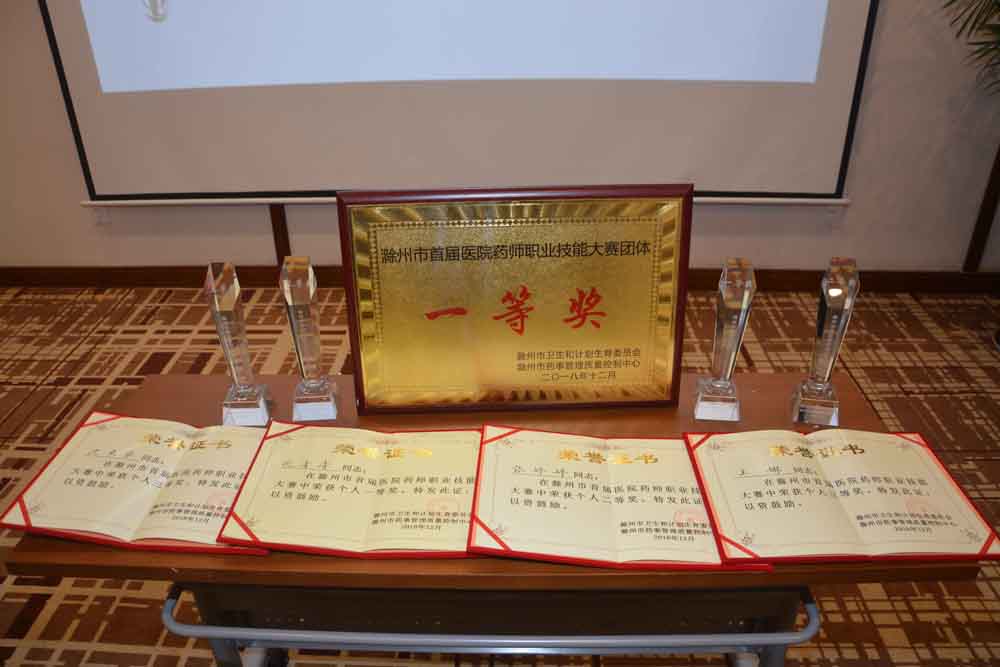 滁州市首届医院药师职业技能大赛团体
一等奖
滁州市卫生和计划生育委员会
滁州市药事管理质量控制中心
二〇一八年十二月
荣誉证书
同志:
在滁州市首届医院药师职业技能
大赛中荣获个人二等奖,特发此证,
以资鼓励。
滁州市卫生和计划生育委员会
滁州市药事管理质量控制中心
2018年12月
荣誉证书
同志:
在滁州市首届医院药师职业技能
大赛中荣获个人一等奖,特发此证,
以资鼓励。
滁州市卫生和计划生育委员会
滁州市药事管理质量控制中心
2018年12月
荣誉证书
同志:
在滁州市首届医院药师职业技
大赛中荣获个人二等奖,特发此证,
以资鼓励。
滁州市卫生和计划生育委员
滁州市药事管理质量控制中
2018年12月
荣誉证书
王娜 同志:
在滁州市首届医院药师职业技能
大赛中荣获个人三等奖,特发此证,
以资鼓励。
滁州市卫生和计划生育委员会
滁州市药事管理质量控制中心
2018年12月